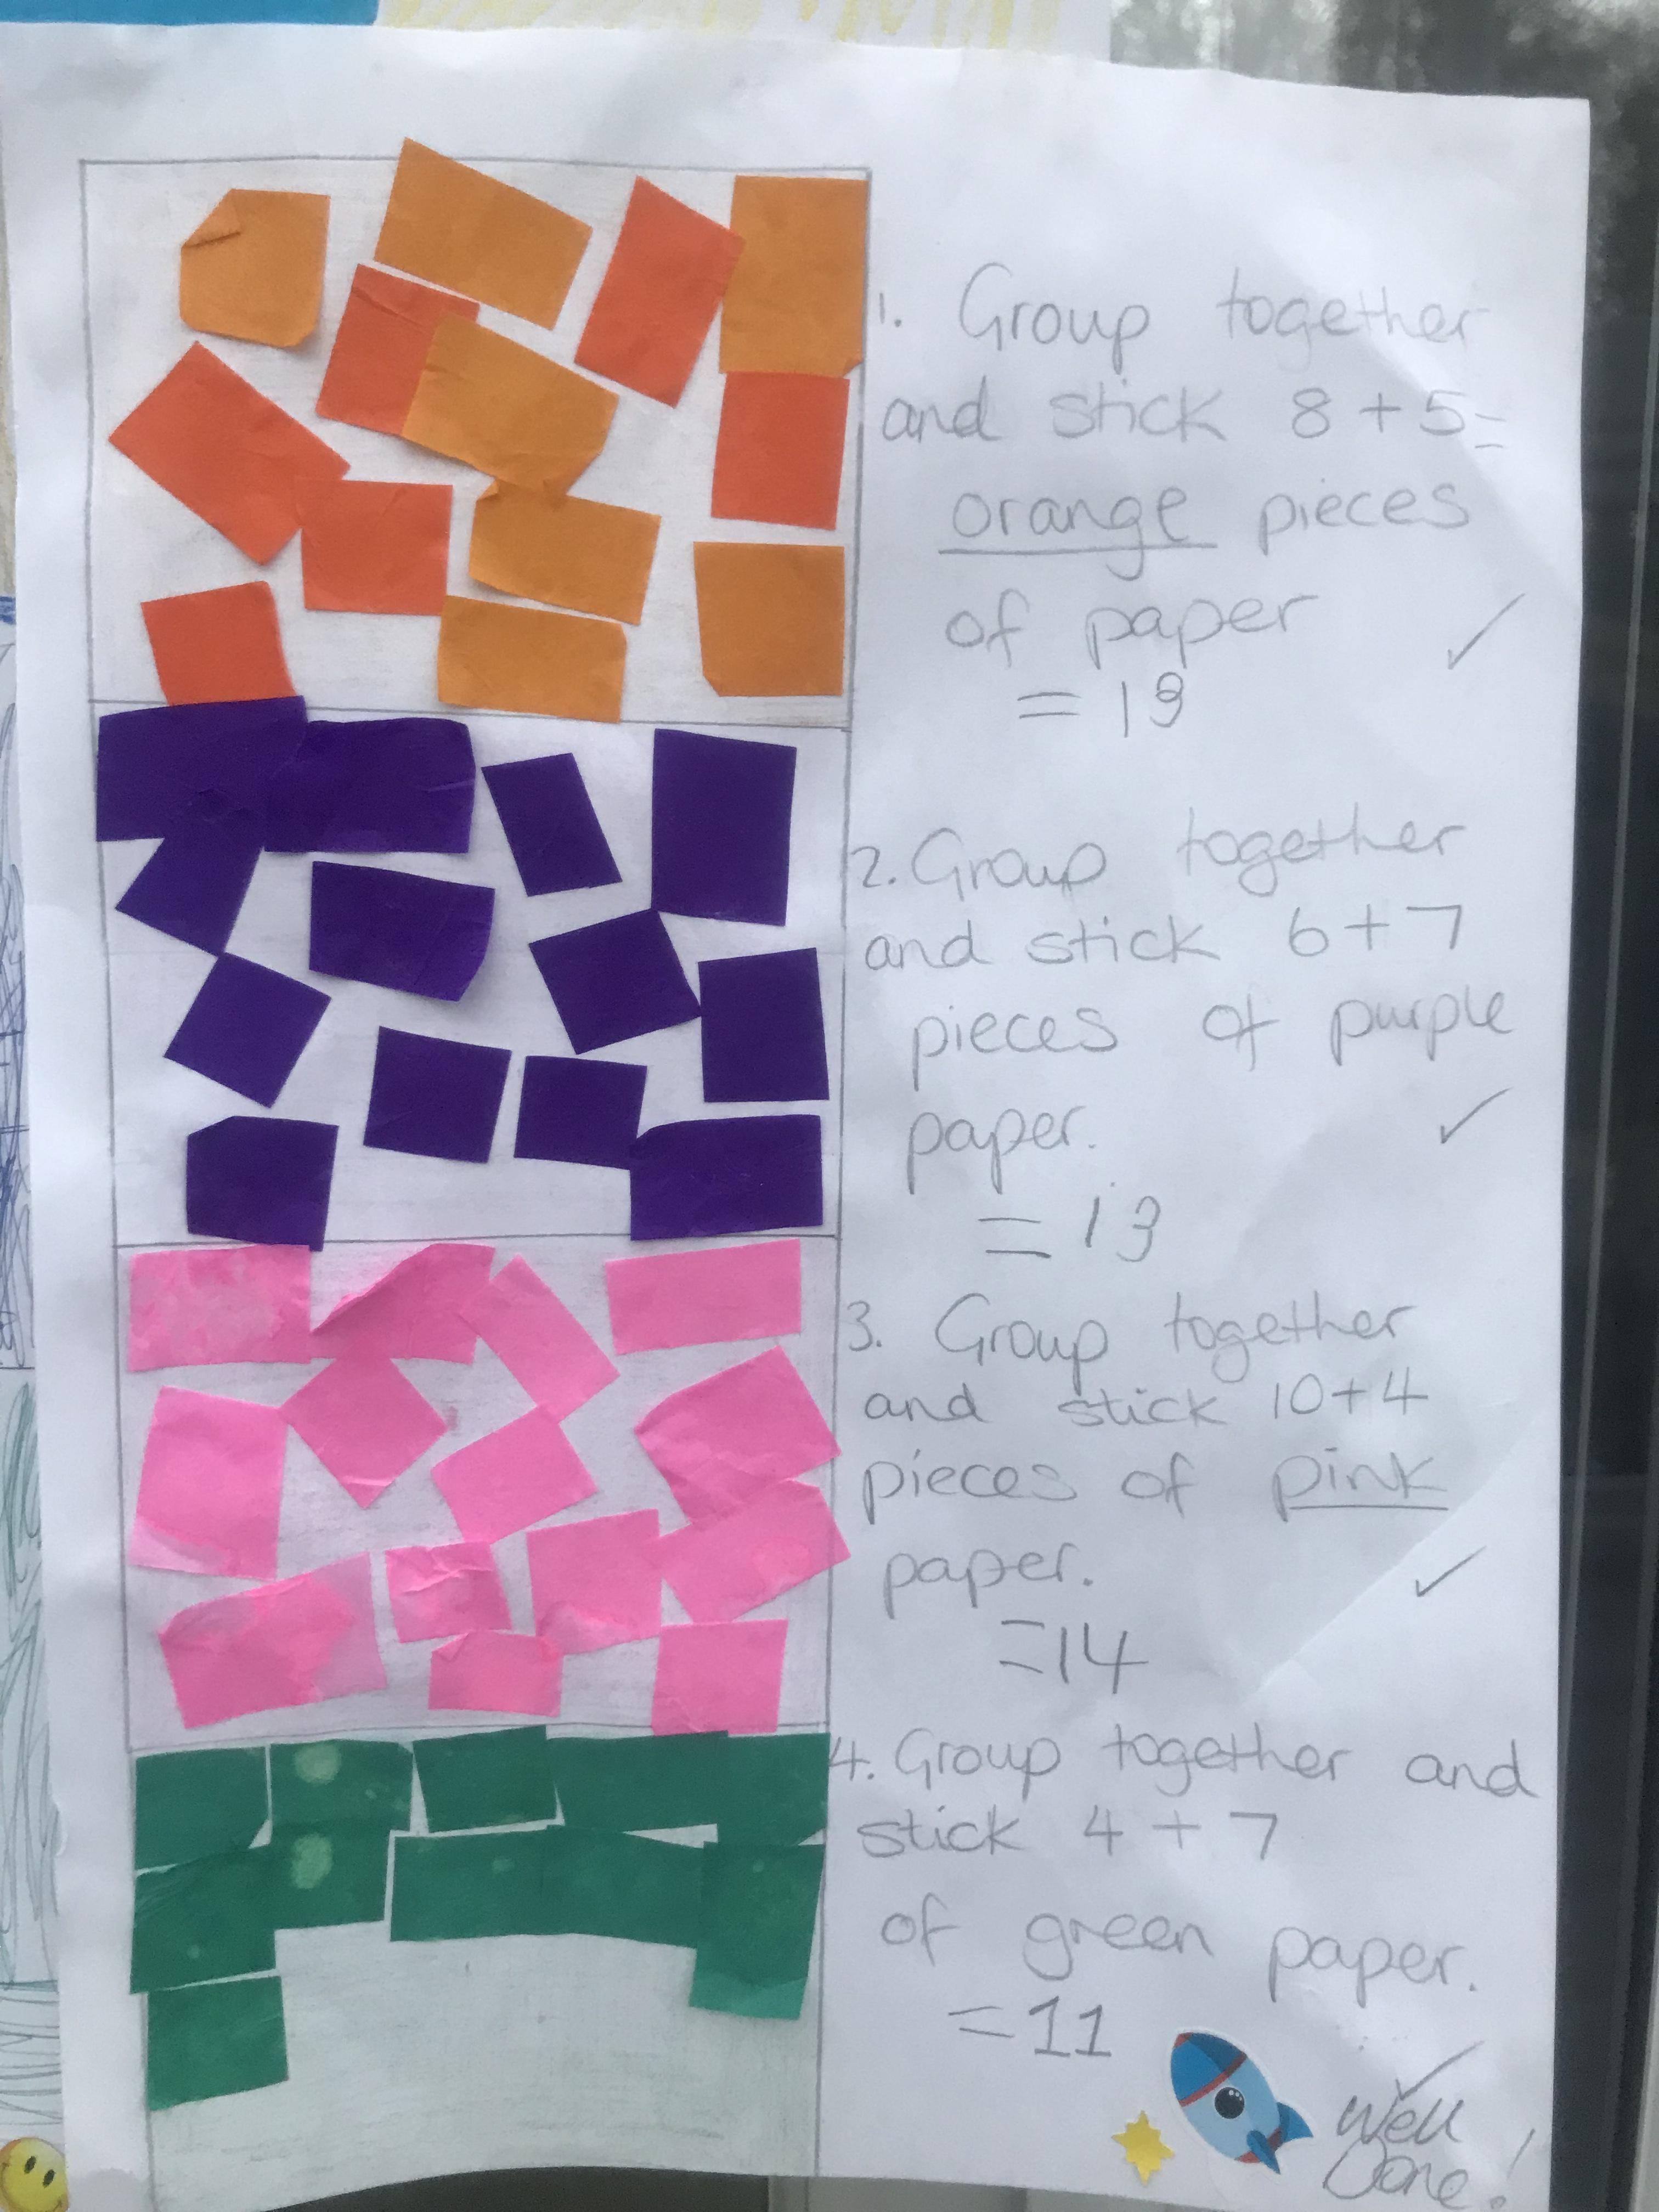 1. Group together
and stick 8 + 5 =
orange pieces
of paper
= 13
2. Group together
and stick 6 + 7
pieces of purple
paper.
= 13
3. Group together
and stick 10 + 4
pieces of pink
paper.
= 14
4. Group together and
stick 4 + 7
of green paper.
= 11
Well
Done!